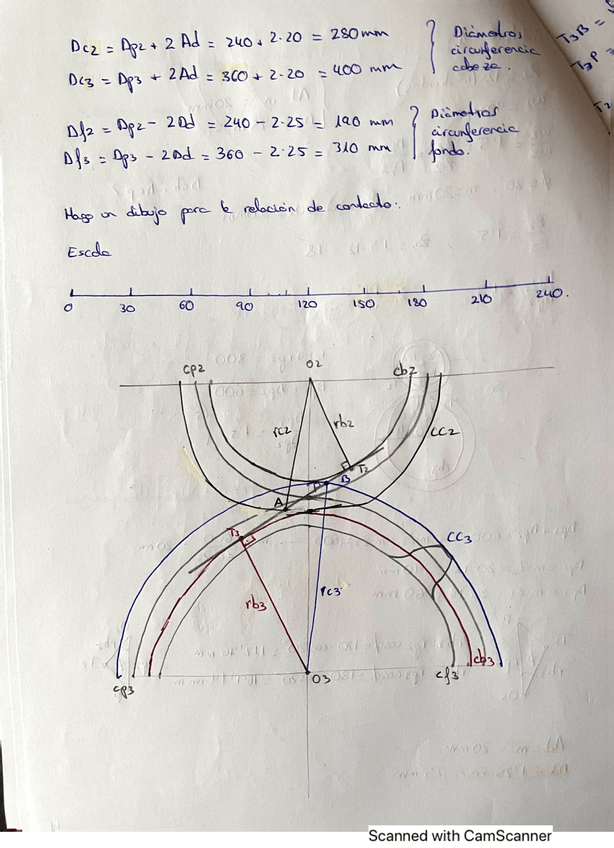 Dc2 = Dp2 + 2Ad = 240 + 2·20 = 280 mm
Dc3 = Dp3 + 2Ad = 360 + 2·20 = 400 mm
Diámetros
circunferencia
cabeza.
Df2 = Dp2 - 2Dd = 240 - 2·25 = 190 mm
Df3 = Dp3 - 2Dd = 360 - 2·25 = 310 mm
Diámetros
circunferencia
fondo.
T3B =
T3P =
Hago un dibujo para la relación de contacto:
Escala
0 30 60 90 120 150 180 210 240.
cp2 O2 cb2
rc2 rb2 cc2
T2
B
A P
T3 cc3
rb3 rc3
cp3 O3 cf3 cb3
Scanned with CamScanner